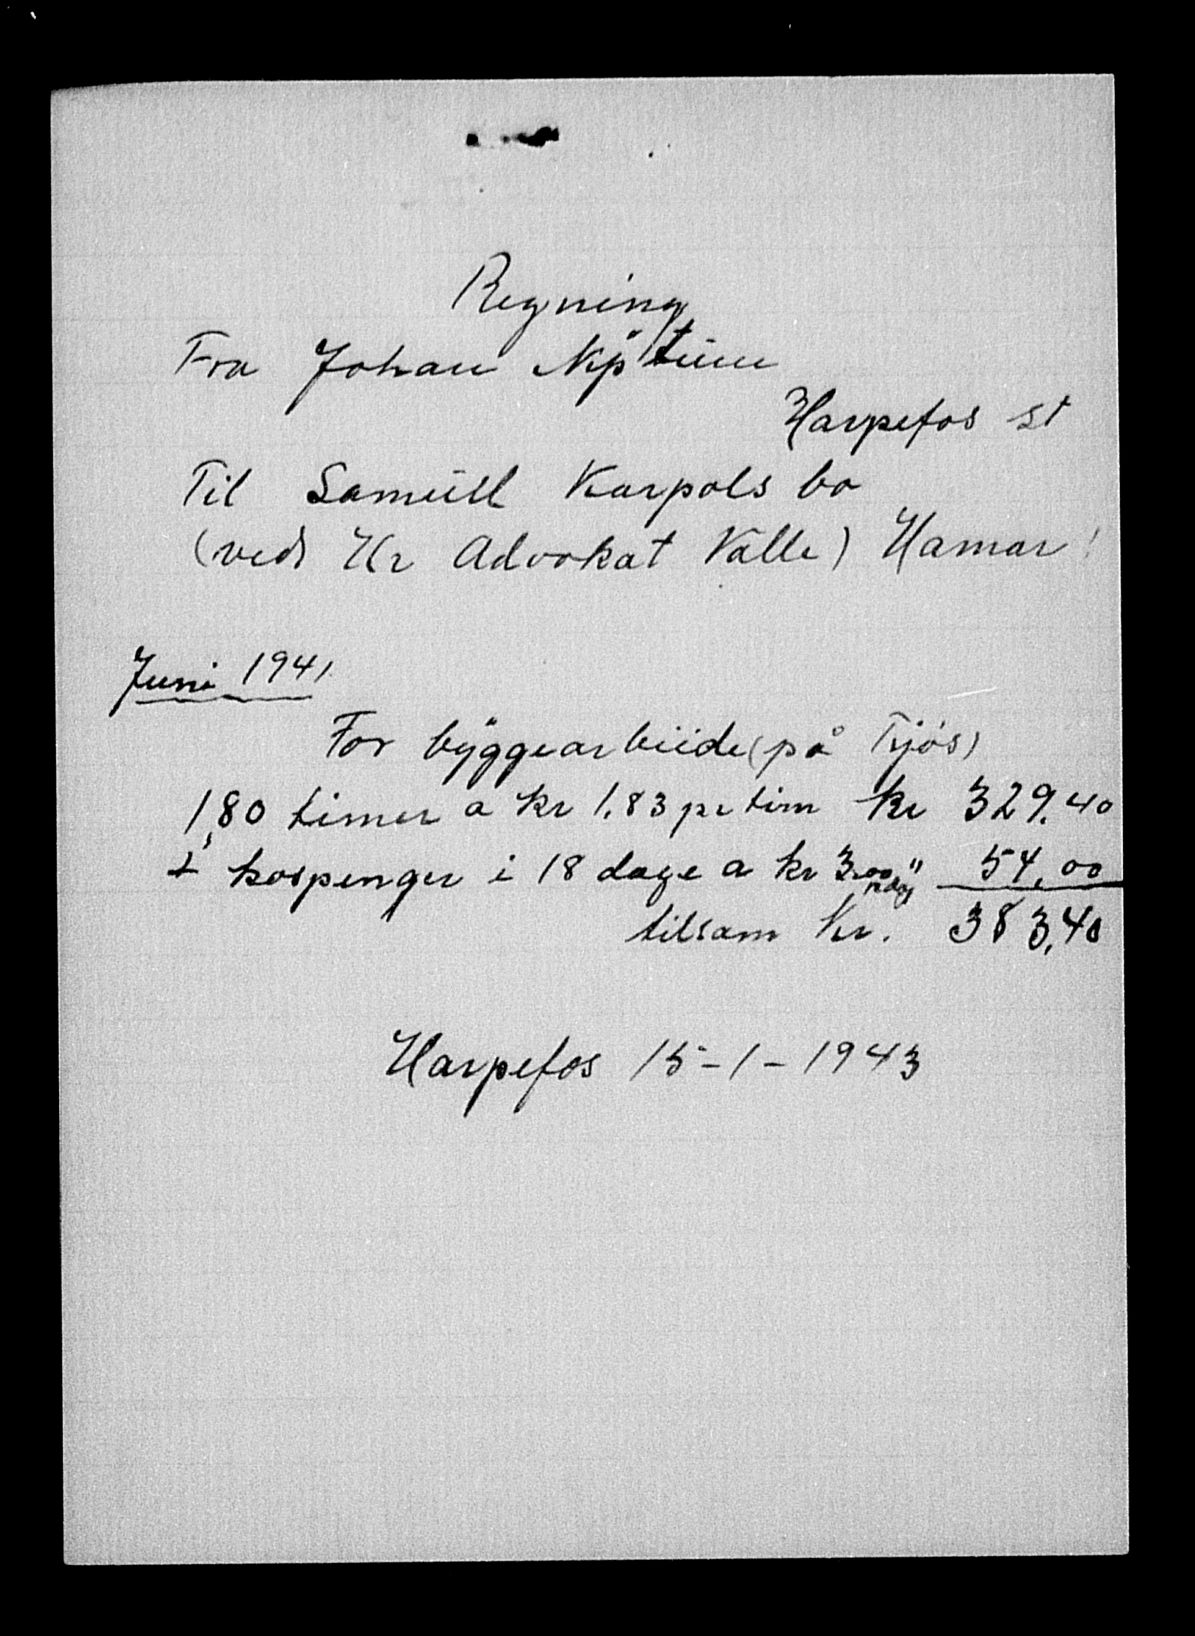 Regning
Fra Johan Nystuen
Harpefos st
Til Samuel Karpols bo
(ved Hr Advokat Valle) Hamar!
Juni 1941
For byggearbeide (på Fjøs)
180 timer a kr 1,83 pr tim kr 329,40
+ kospenger i 18 dage a kr 3.00 " 54,00
tilsam kr. 383,40
Harpefos 15-1-1943